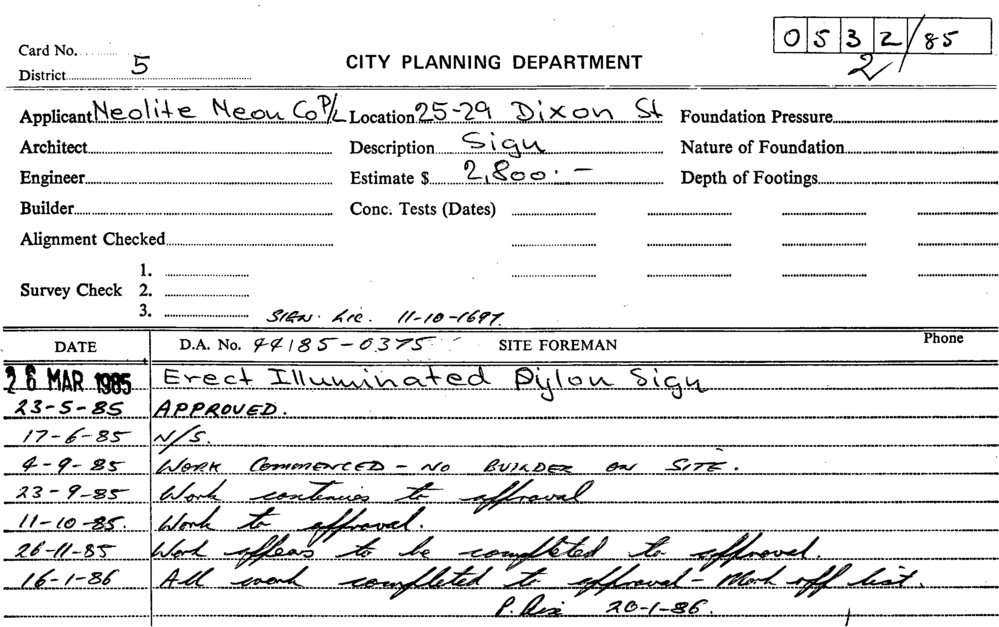 0532/85
2
Card No.
District 5
CITY PLANNING DEPARTMENT
Applicant Neolite Neon Co P/L Location 25-29 Dixon St Foundation Pressure
Architect Description Sign Nature of Foundation
Engineer Estimate $ 2,800.- Depth of Footings
Builder Conc. Tests (Dates)
Alignment Checked
1.
Survey Check 2.
3. SIGN. Lic. 11-10-1697
DATE D.A. No. 44185-0375 SITE FOREMAN Phone
26 MAR 1985 Erect Illuminated Pylon Sign
23-5-85 APPROVED.
17-6-85 N/S.
4-9-85 WORK COMMENCED - NO BUILDER ON SITE.
23-9-85 Work continues to approval
11-10-85. Work to approval.
26-11-85 Work appears to be completed to approval.
16-1-86 All work completed to approval - Mark off list.
P. 20-1-86.